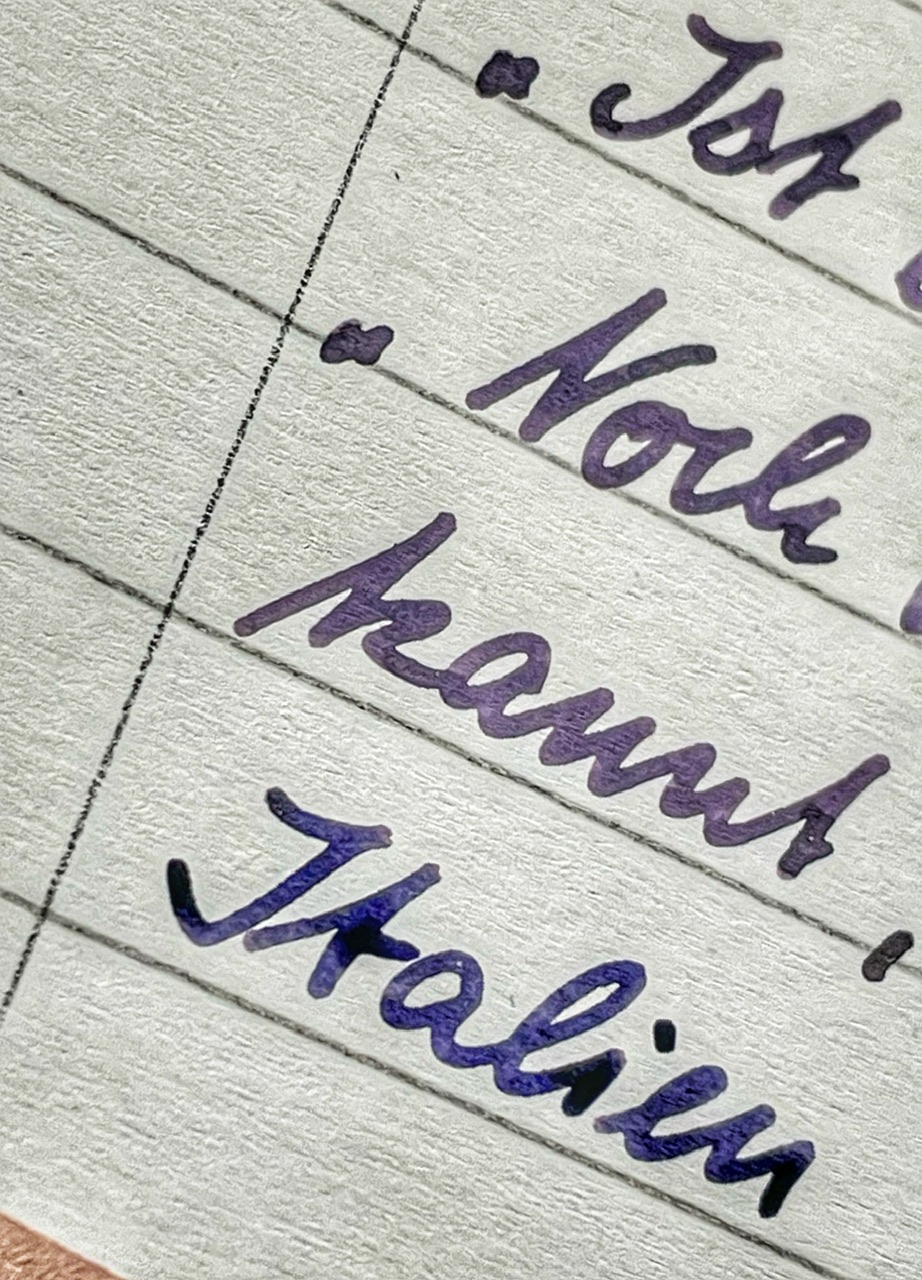 - Ist
- Noch
kannt,
Italien